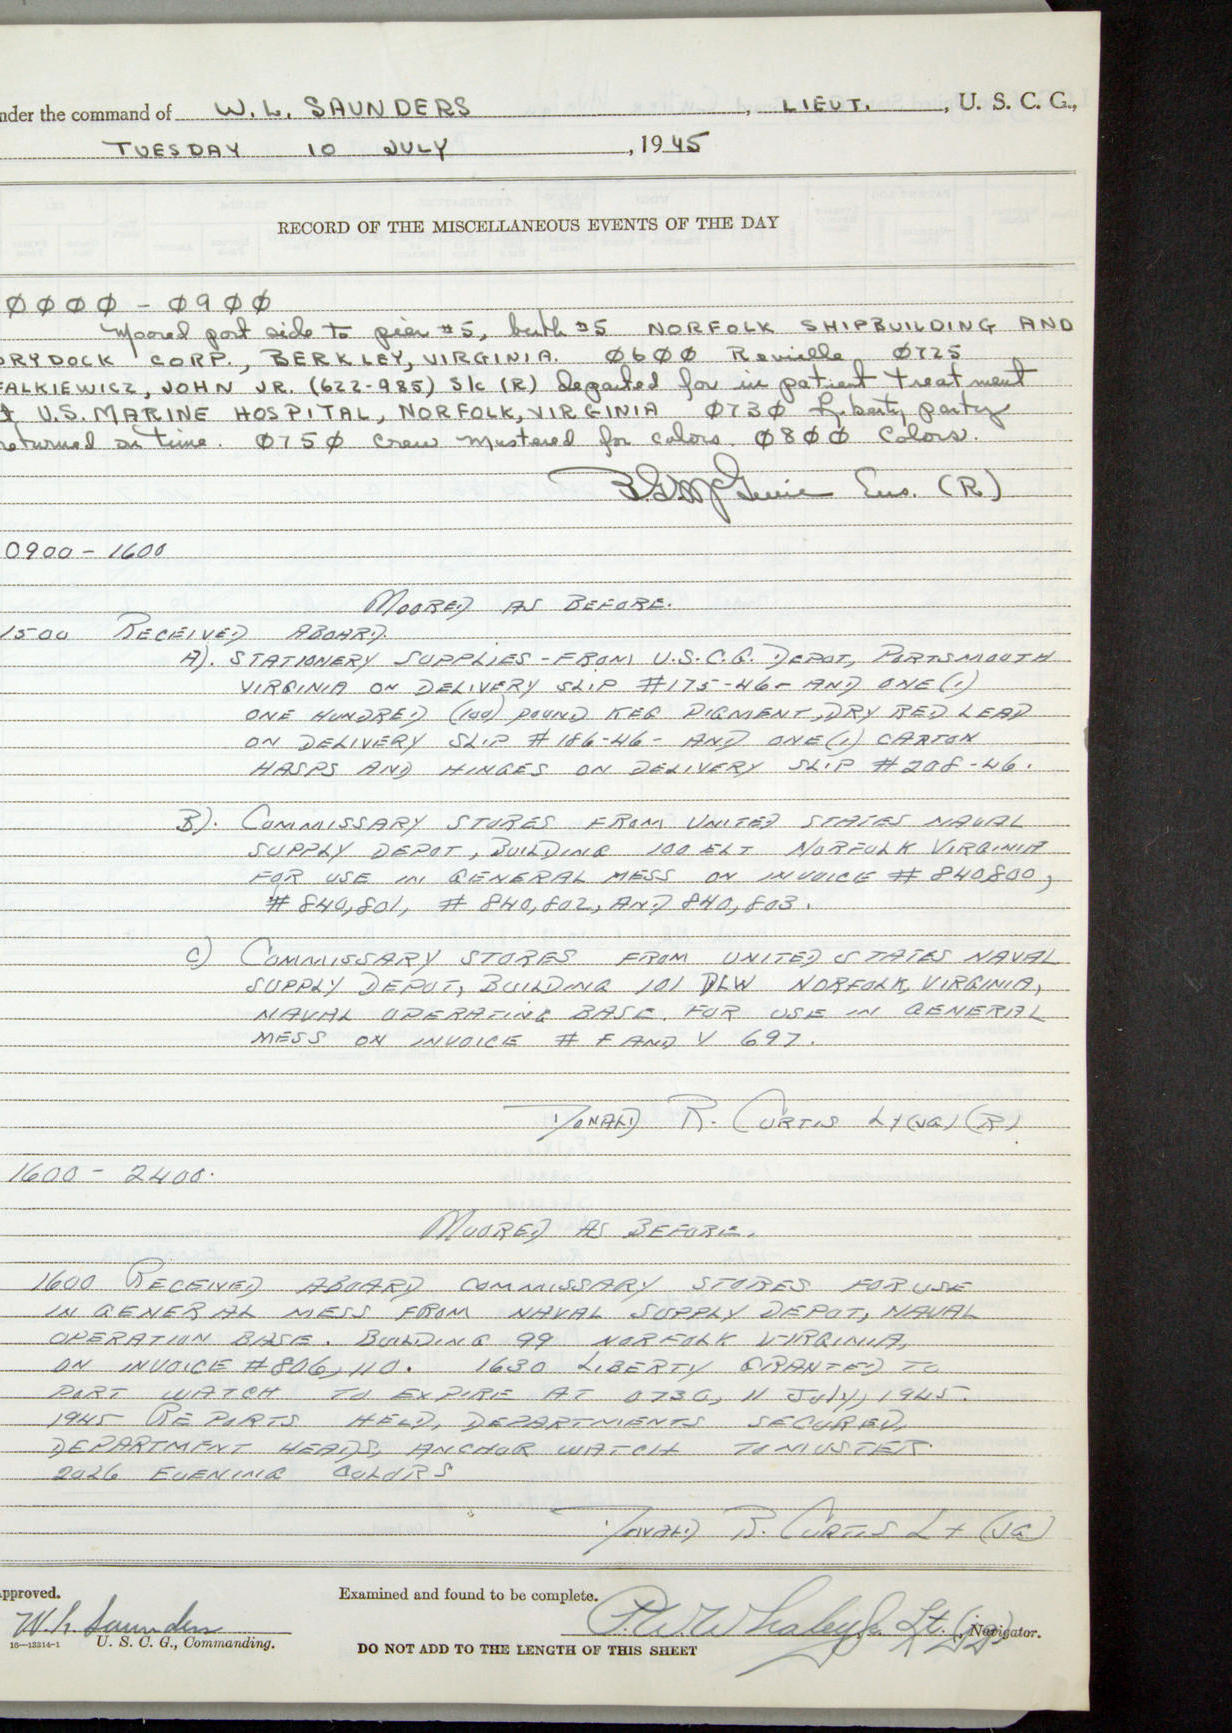 nder the command of W. L. SAUNDERS, LIEUT., U. S. C. G.,
TUESDAY 10 JULY, 1945
RECORD OF THE MISCELLANEOUS EVENTS OF THE DAY
0000 - 0900
Moored port side to pier #5, berth #5 NORFOLK SHIPBUILDING AND
DRYDOCK CORP., BERKLEY, VIRGINIA. 0600 Reveille 0725
FALKIEWICZ, JOHN JR. (622-985) S1c (R) departed for in patient treatment
at U.S. MARINE HOSPITAL, NORFOLK, VIRGINIA 0730 Liberty party
returned on time. 0750 Crew mustered for colors. 0800 Colors.
Ens. (R)
0900 - 1600
MOORED AS BEFORE.
1500 RECEIVED ABOARD.
A). STATIONERY SUPPLIES - FROM U.S.C.G. DEPOT, PORTSMOUTH
VIRGINIA ON DELIVERY SLIP #175-46- AND ONE (1)
ONE HUNDRED (100) POUND KEG PIGMENT, DRY RED LEAD
ON DELIVERY SLIP #186-46- AND ONE (1) CARTON
HASPS AND HINGES ON DELIVERY SLIP #208-46.
B). COMMISSARY STORES FROM UNITED STATES NAVAL
SUPPLY DEPOT, BUILDING 100 ELT NORFOLK VIRGINIA
FOR USE IN GENERAL MESS ON INVOICE #840800,
#840,801, #840,802, AND 840,803.
C) COMMISSARY STORES FROM UNITED STATES NAVAL
SUPPLY DEPOT, BUILDING 101 DLW NORFOLK, VIRGINIA,
NAVAL OPERATING BASE. FOR USE IN GENERAL
MESS ON INVOICE # F AND V 697.
DONALD R. CURTIS Lt (JG) (R)
1600 - 2400.
MOORED AS BEFORE.
1600 RECEIVED ABOARD COMMISSARY STORES FOR USE
IN GENERAL MESS FROM NAVAL SUPPLY DEPOT, NAVAL
OPERATION BASE. BUILDING 99 NORFOLK VIRGINIA,
ON INVOICE #806,110. 1630 LIBERTY GRANTED TO
PORT WATCH TO EXPIRE AT 0730, 11 July, 1945.
1945 REPORTS HELD, DEPARTMENTS SECURED,
DEPARTMENT HEADS, ANCHOR WATCH TO MUSTER.
2026 EVENING COLORS
DONALD R. CURTIS Lt (JG)
Approved.
Examined and found to be complete.
W. L. Saunders
U. S. C. G., Commanding.
Lt. (jg), Navigator.
16—13314-1
DO NOT ADD TO THE LENGTH OF THIS SHEET